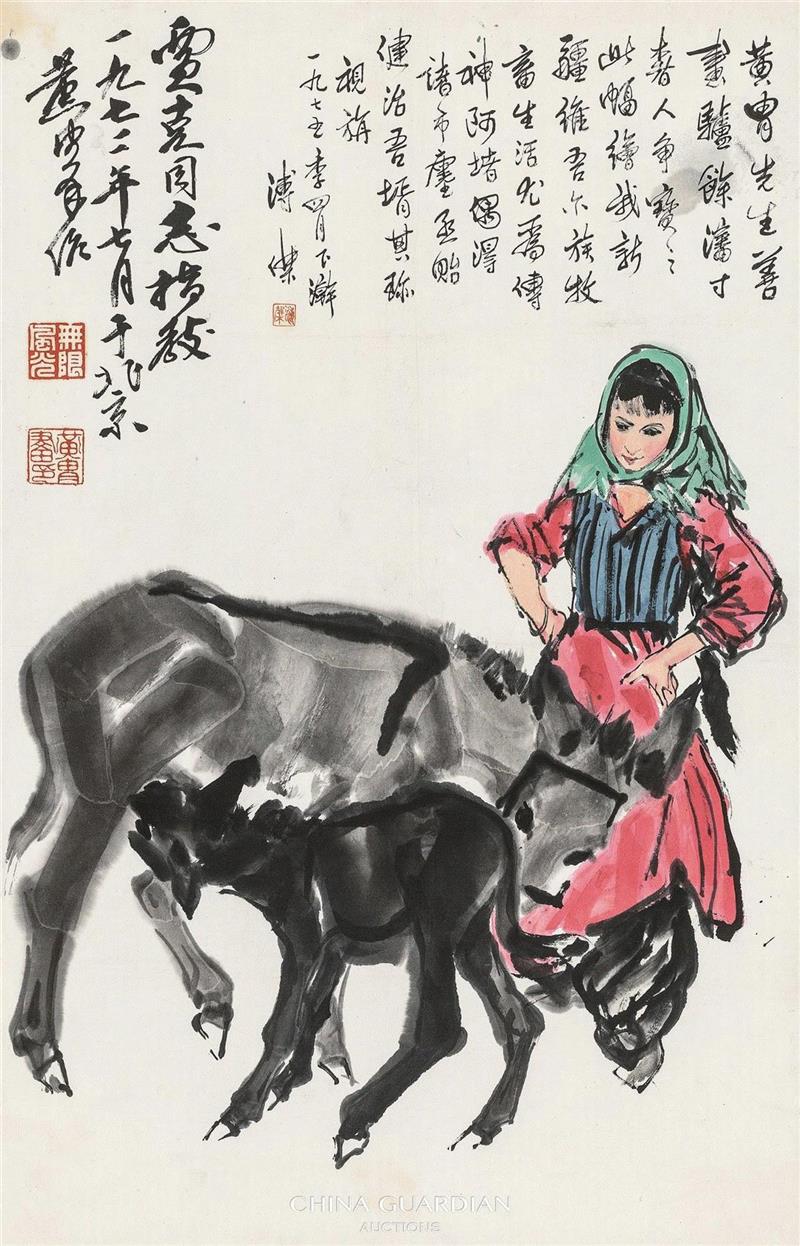 黄胄先生善
畫驢餘瀋寸
楮人争寶之
此幅繪我新
疆維吾尔族牧
畜生活尤爲傳
神阿堵偶淂
諸市廛亟貽
健治吾壻其珎
視旃
一九七五季四月下澣
溥傑
溥傑
賈克同志指教
一九七二年七月于北京
黄胄作
無限風光
黄胄畫印
CHINA GUARDIAN
AUCTIONS